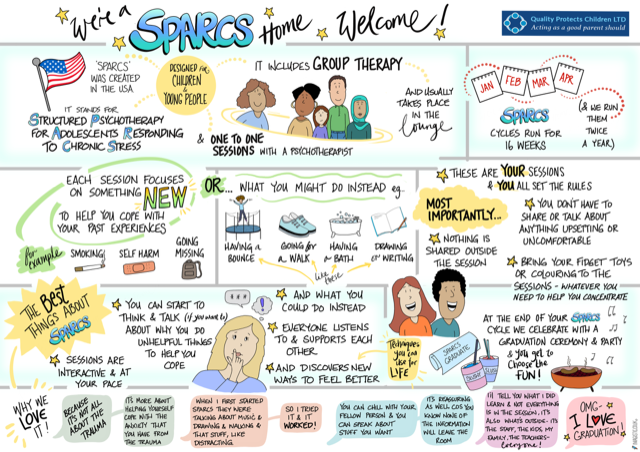 We're a SPARCS Home Welcome!
Quality Protects Children LTD
Acting as a good parent should
'SPARCS'
WAS CREATED
IN THE USA
IT STANDS FOR
STRUCTURED PSYCHOTHERAPY
FOR ADOLESCENTS RESPONDING
TO CHRONIC STRESS
DESIGNED for
CHILDREN
&
YOUNG PEOPLE
IT INCLUDES GROUP THERAPY
AND USUALLY
TAKES PLACE
IN the
lounge
& ONE TO ONE
SESSIONS WITH A PSYCHOTHERAPIST
JAN
FEB
MAR
APR
SPARCS
CYCLES RUN FOR
16 WEEKS
(& WE RUN
THEM
TWICE
A YEAR)
EACH SESSION FOCUSES
ON SOMETHING NEW
TO HELP YOU COPE WITH
YOUR PAST EXPERIENCES
for
example
SMOKING
SELF HARM
GOING
MISSING
OR... WHAT YOU MIGHT DO INSTEAD eg.
HAVING a
BOUNCE
GOING for
a WALK
HAVING
a BATH
DRAWING
or WRITING
like these
THESE ARE YOUR SESSIONS
& YOU ALL SET THE RULES
MOST
IMPORTANTLY...
NOTHING IS
SHARED OUTSIDE
THE SESSION
YOU DON'T HAVE TO
SHARE OR TALK ABOUT
ANYTHING UPSETTING OR
UNCOMFORTABLE
BRING YOUR FIDGET TOYS
OR COLOURING TO THE
SESSIONS - WHATEVER YOU
NEED TO HELP YOU CONCENTRATE
THE BEST
THINGS ABOUT
SPARCS
SESSIONS ARE
INTERACTIVE & AT
YOUR PACE
YOU CAN START TO
THINK & TALK (if you want to)
ABOUT WHY YOU DO
UNHELPFUL THINGS
TO HELP YOU
COPE
AND WHAT YOU
COULD DO INSTEAD
EVERYONE LISTENS
TO & SUPPORTS EACH
OTHER
AND DISCOVERS NEW
WAYS TO FEEL BETTER
Techniques
you can
use for
LIFE
SPARCS
GRADUATE
AT THE END OF YOUR SPARCS
CYCLE WE CELEBRATE WITH A
GRADUATION CEREMONY & PARTY
& you get to
choose the
FUN!
WHY WE
LOVE
IT!
BECAUSE
IT'S NOT ALL
ABOUT THE
TRAUMA
IT'S MORE ABOUT
HELPING YOURSELF
COPE WITH THE
ANXIETY THAT
YOU HAVE FROM
THE TRAUMA
WHEN I FIRST STARTED
SPARCS THEY WERE
TALKING ABOUT MUSIC &
DRAWING & WALKING &
THAT STUFF, LIKE
DISTRACTING.
SO I TRIED
IT & IT
WORKED!
YOU CAN CHILL WITH YOUR
FELLOW PERSON & YOU
CAN SPEAK ABOUT
STUFF YOU WANT
IT'S REASSURING
AS WELL COS YOU
KNOW NONE OF
THE INFORMATION
WILL LEAVE THE
ROOM
I'LL TELL YOU WHAT I DID
LEARN & NOT EVERYTHING
IS IN THE SESSION. IT'S
ALSO WHAT'S OUTSIDE - IT'S
THE STAFF, THE KIDS, MY
FAMILY, THE TEACHERS -
Everyone!
OMG -
I LOVE
GRADUATION!